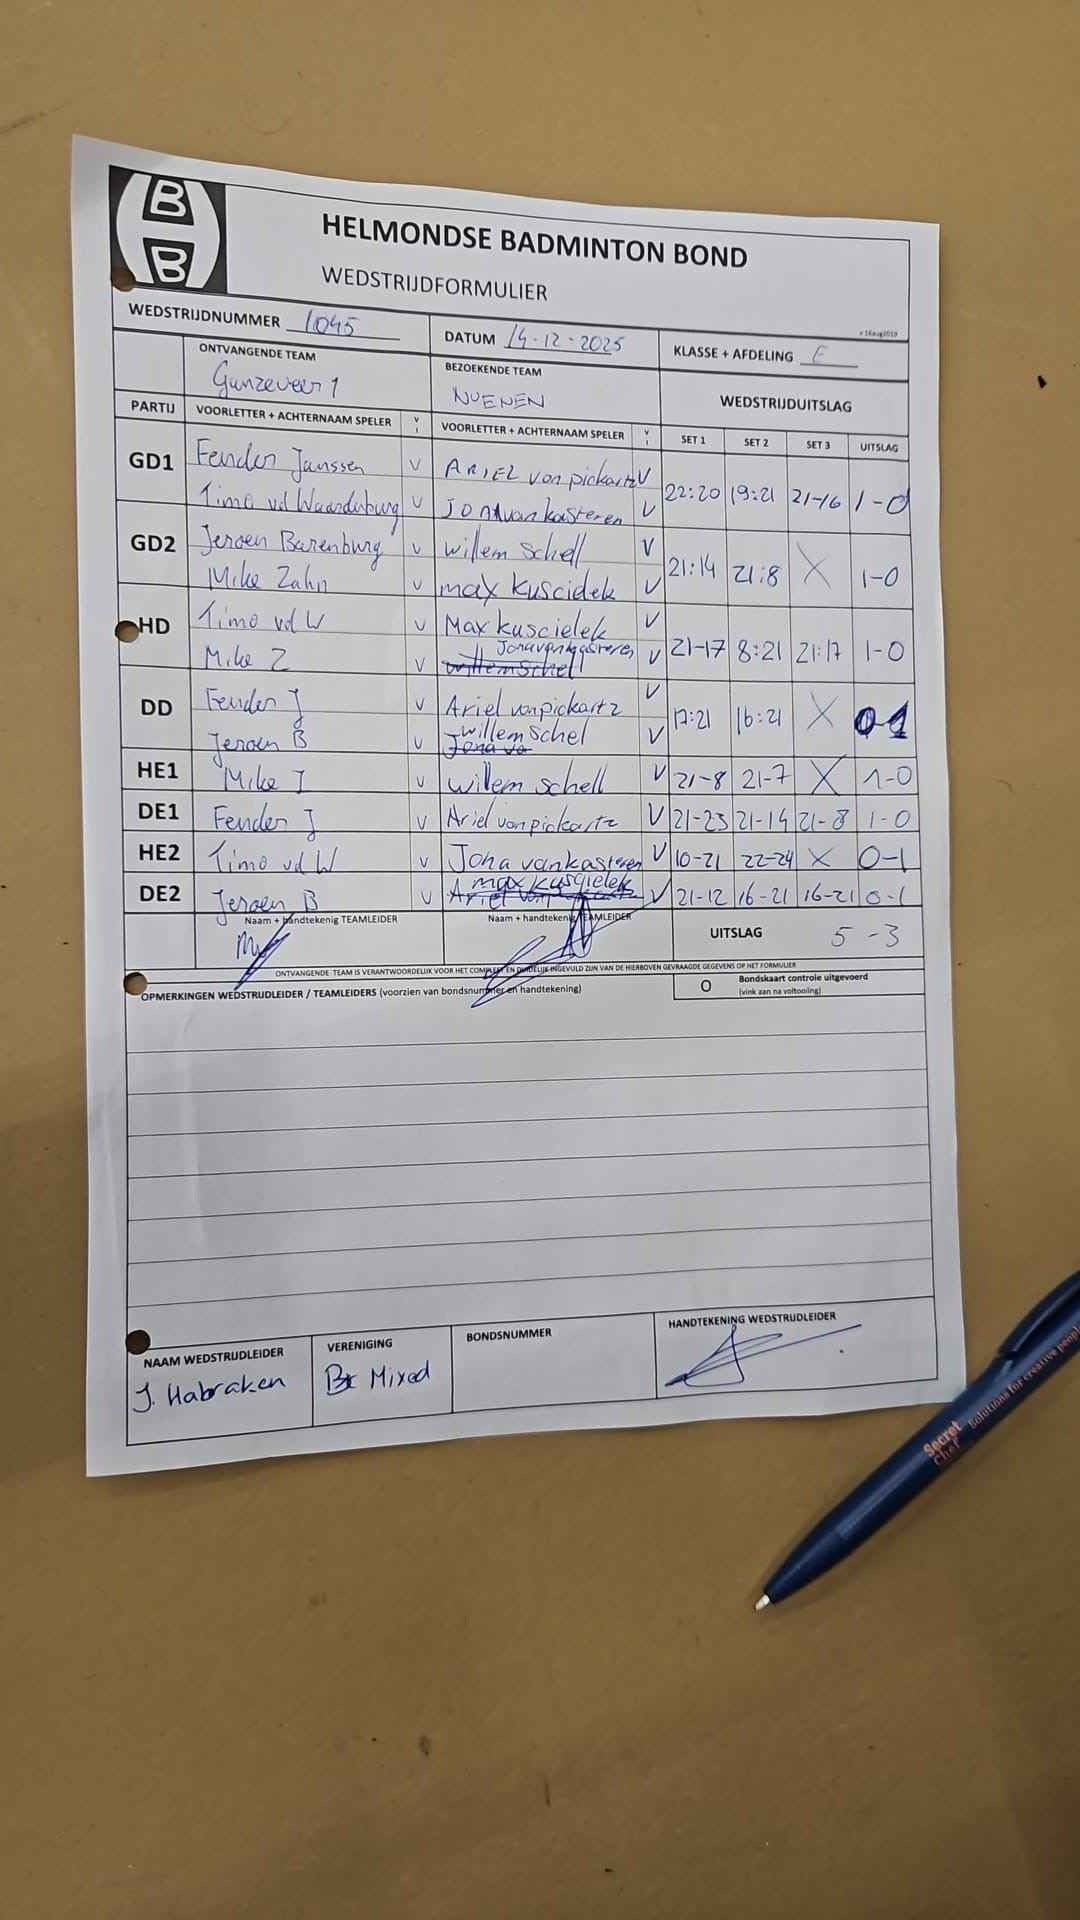 B
B
HELMONDSE BADMINTON BOND
WEDSTRIJDFORMULIER
v 16aug2019
WEDSTRIJDNUMMER 1045 DATUM 14-12-2025 KLASSE + AFDELING E
ONTVANGENDE TEAM BEZOEKENDE TEAM
Ganzeveer 1 NUENEN WEDSTRIJDUITSLAG
PARTIJ VOORLETTER + ACHTERNAAM SPELER V/I VOORLETTER + ACHTERNAAM SPELER V/I SET 1 SET 2 SET 3 UITSLAG
GD1 Fender Janssen V ARIEL von pickartz V 22:20 19:21 21-16 1-0
Timo vd Waardenburg V JONA van kasteren V
GD2 Jeroen Barenburg V willem Schell V 21:14 21:8 X 1-0
Mike Zahn V max Kuscielek V
HD Timo vd W V Max kuscielek V 21-17 8:21 21:17 1-0
Mike Z V Jona van kasteren V
willem Schell
DD Fender J V Ariel von pickartz V 17:21 16:21 X 0-1
Jeroen B V willem Schel V
Jona va
HE1 Mike Z V willem Schell V 21-8 21-7 X 1-0
DE1 Fender J V Ariel von pickartz V 21-23 21-14 21-8 1-0
HE2 Timo vd W V Joha van kasteren V 10-21 22-24 X 0-1
DE2 Jeroen B V max kuscielek V 21-12 16-21 16-21 0-1
Ariel von
Naam + handtekenig TEAMLEIDER Naam + handtekenig TEAMLEIDER UITSLAG 5-3
ONTVANGENDE TEAM IS VERANTWOORDELIJK VOOR HET COMPLEET EN DUIDELIJK INGEVULD ZIJN VAN DE HIERBOVEN GEVRAAGDE GEGEVENS OP HET FORMULIER
OPMERKINGEN WEDSTRIJDLEIDER / TEAMLEIDERS (voorzien van bondsnummer en handtekening) O Bondskaart controle uitgevoerd
(vink aan na voltooiing)
NAAM WEDSTRIJDLEIDER VERENIGING BONDSNUMMER HANDTEKENING WEDSTRIJDLEIDER
J. Habraken BC Mixed
Secret Chef Solutions for creative people